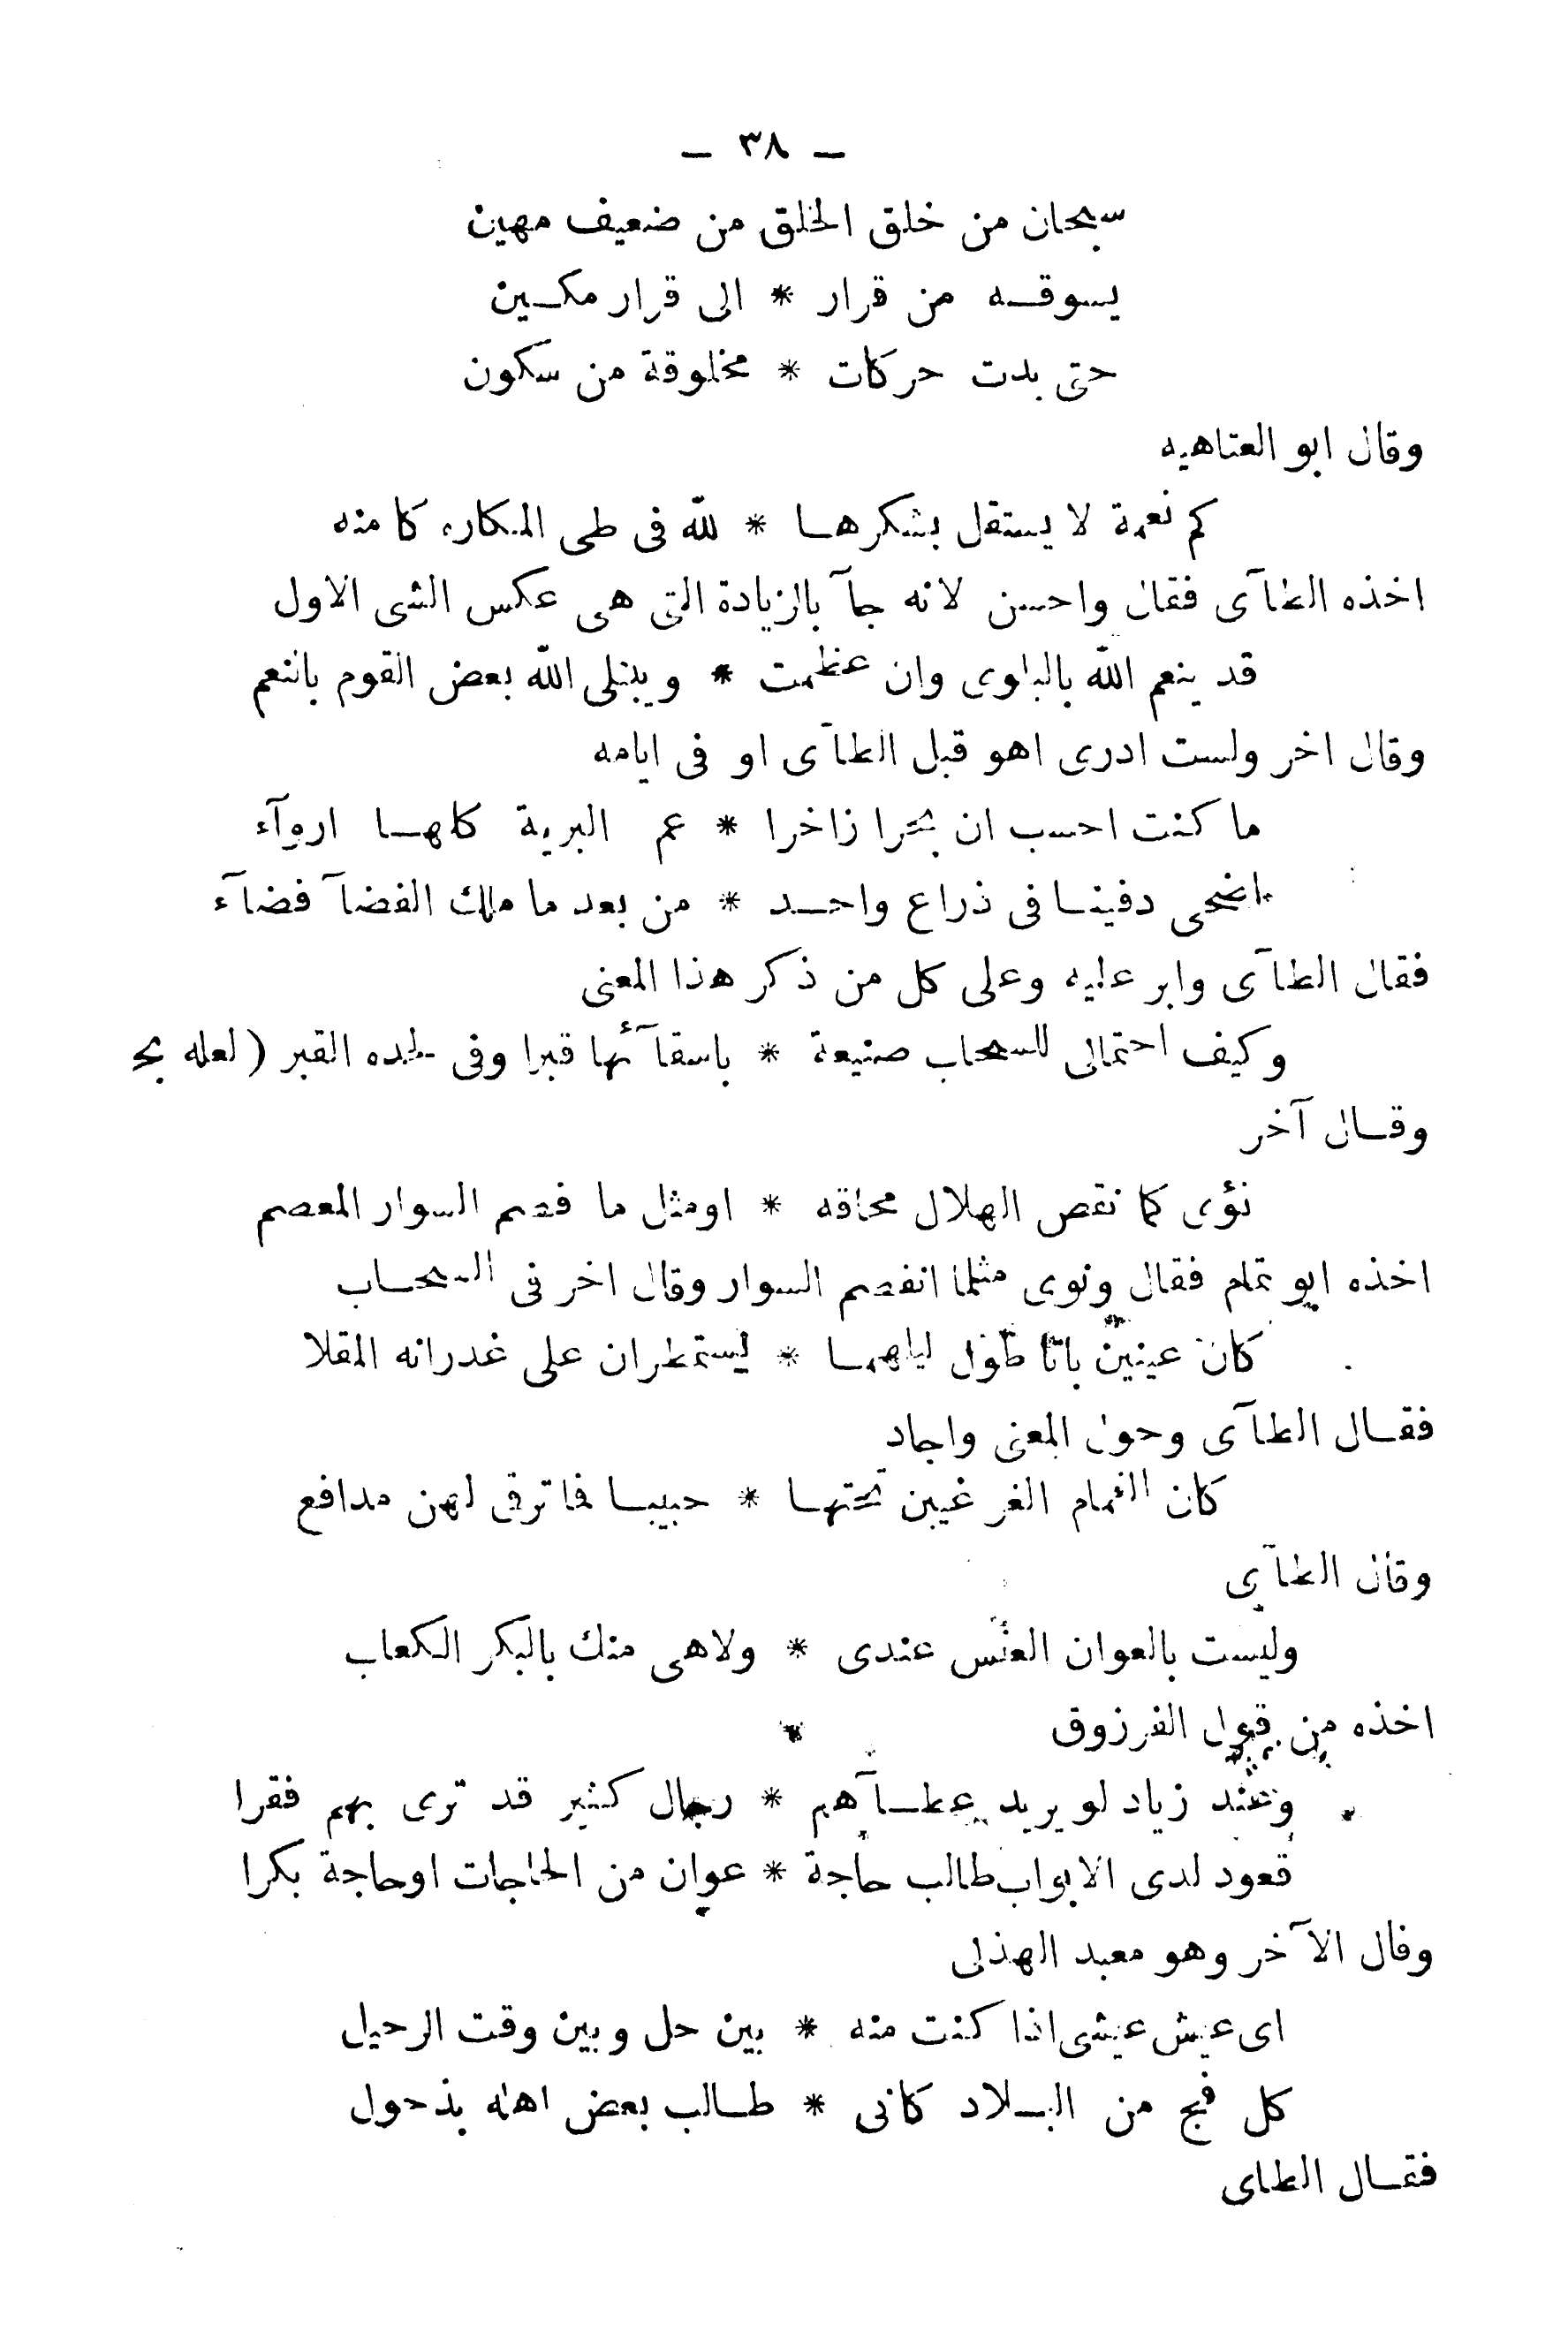 — ٣٨ —
سبحان من خلق الخلق من ضعيف مهين
يسوقه من قرار * الى قرار مكين
حتى بدت حركات * مخلوقة من سكون
وقال ابو العتاهيه
كم نعمة لا يستقل بشكرها * لله فى طى المكاره كامنه
اخذه الطآى فقال واحسن لانه جآ بالزيادة التى هى عكس الشى الاول
قد ينعم الله بالبلوى وان عظمت * ويبتلى الله بعض القوم بالنعم
وقال اخر ولست ادرى اهو قبل الطآى او فى ايامه
ما كنت احسب ان بحرا زاخرا * عم البرية كلها اروآء
اضحى دفينا فى ذراع واحد * من بعد ما ملك الفضآ فضآء
فقال الطآى وابر عليه وعلى كل من ذكر هذا المعنى
وكيف احتمالى للسحاب صنيعة * باسقآئها قبرا وفى لحده القبر (لعله بح
وقال آخر
نؤى كما نقص الهلال محاقه * اومثل ما فصم السوار المعصم
اخذه ابو تمام فقال ونوى مثلما انفصم السوار وقال اخر فى السحاب
كان عينين باتا طول ليلهما * يستمطران على غدرانه المقلا
فقال الطآى وحول المعنى واجاد
كان الغمام الغر غيبن تحتها * حبيبا فما ترقى لهن مدافع
وقال الطآى
وليست بالعوان العنس عندى * ولاهى منك بالبكر الكعاب
اخذه من قول الفرزوق
وعند زياد لو يريد عطآهم * رجال كثير قد ترى بهم فقرا
قعود لدى الابواب طالب حاجة * عوان من الحاجات اوحاجة بكرا
وفال الآخر وهو معبد الهذلى
اى عيش عيشى اذا كنت منه * بين حل وبين وقت الرحيل
كل فج من البلاد كانى * طالب بعض اهله بذحول
فقال الطاى